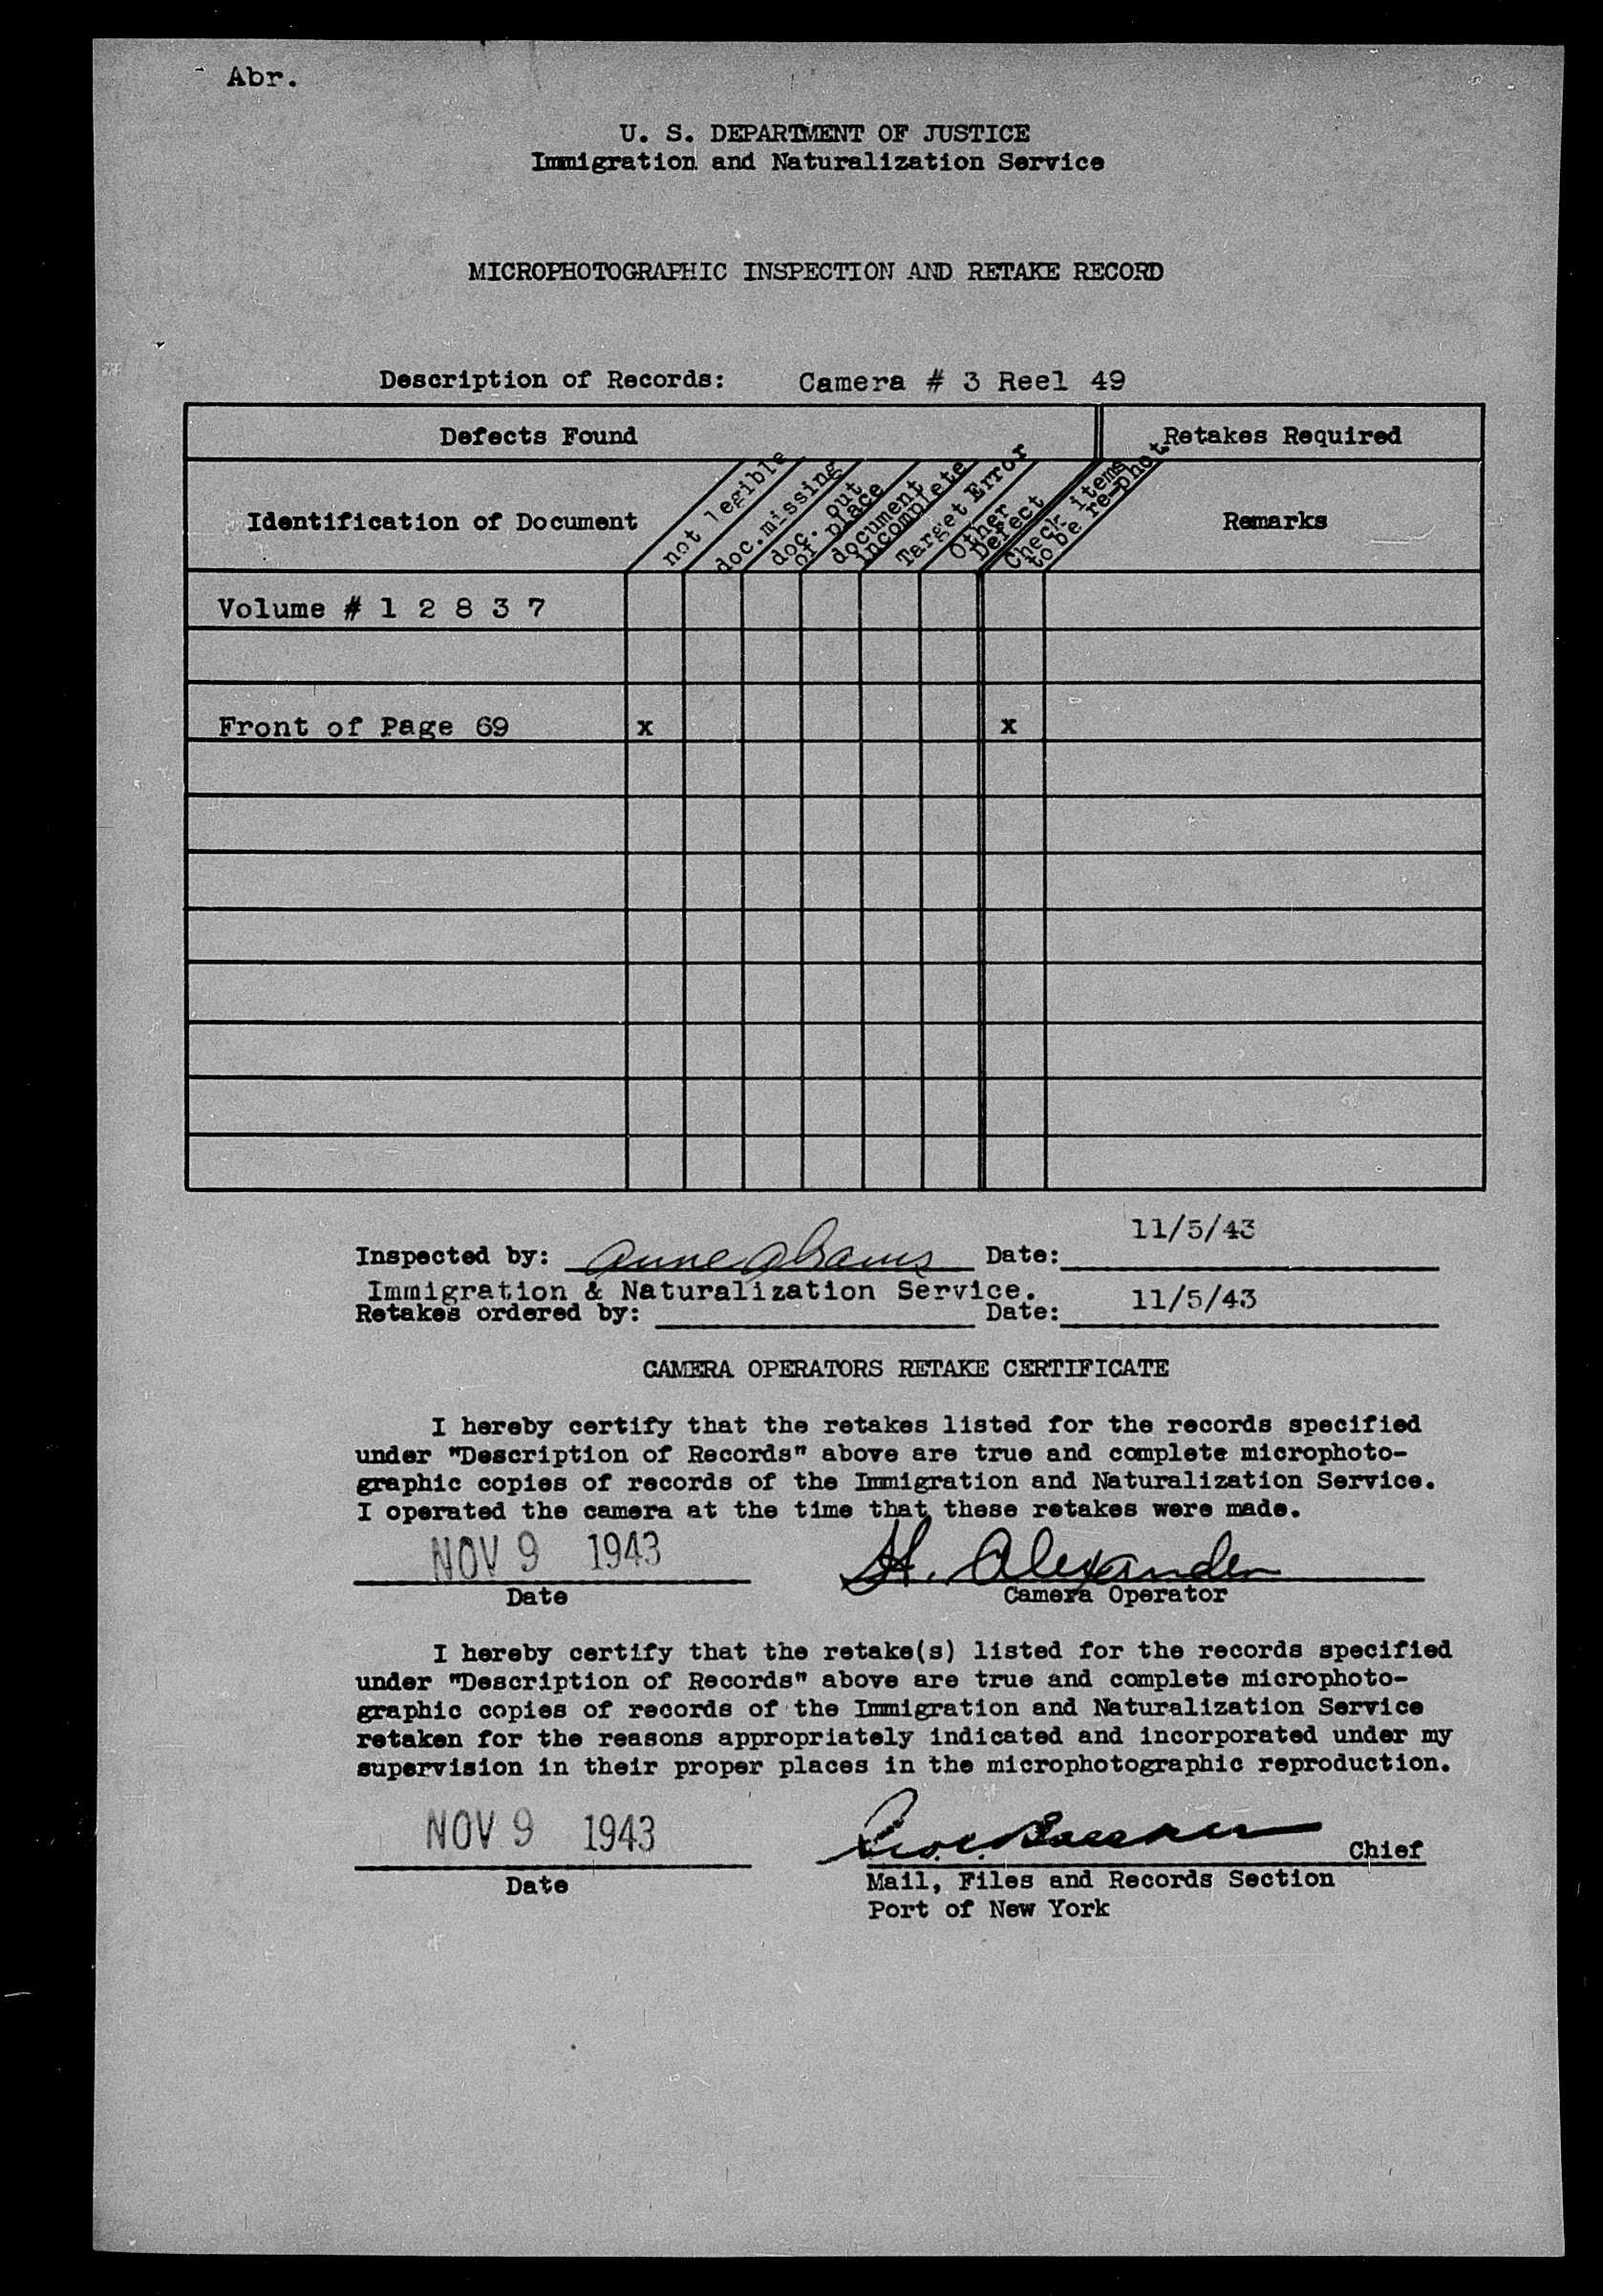 Abr.
U. S. DEPARTMENT OF JUSTICE
Immigration and Naturalization Service
MICROPHOTOGRAPHIC INSPECTION AND RETAKE RECORD
Description of Records: Camera # 3 Reel 49
Defects Found
Retakes Required
Identification of Document
not legible
doc. missing
doc. out
of place
document
incomplete
Target Error
Other
Defect
Check items
to be re-phot.
Remarks
Volume # 1 2 8 3 7
Front of Page 69 x x
11/5/43
Inspected by: Anne Abrams Date:
Immigration & Naturalization Service.
11/5/43
Retakes ordered by: Date:
CAMERA OPERATORS RETAKE CERTIFICATE
I hereby certify that the retakes listed for the records specified
under "Description of Records" above are true and complete microphoto-
graphic copies of records of the Immigration and Naturalization Service.
I operated the camera at the time that these retakes were made.
NOV 9 1943 H. Alexander
Date Camera Operator
I hereby certify that the retake(s) listed for the records specified
under "Description of Records" above are true and complete microphoto-
graphic copies of records of the Immigration and Naturalization Service
retaken for the reasons appropriately indicated and incorporated under my
supervision in their proper places in the microphotographic reproduction.
NOV 9 1943 Chief
Date
Mail, Files and Records Section
Port of New York